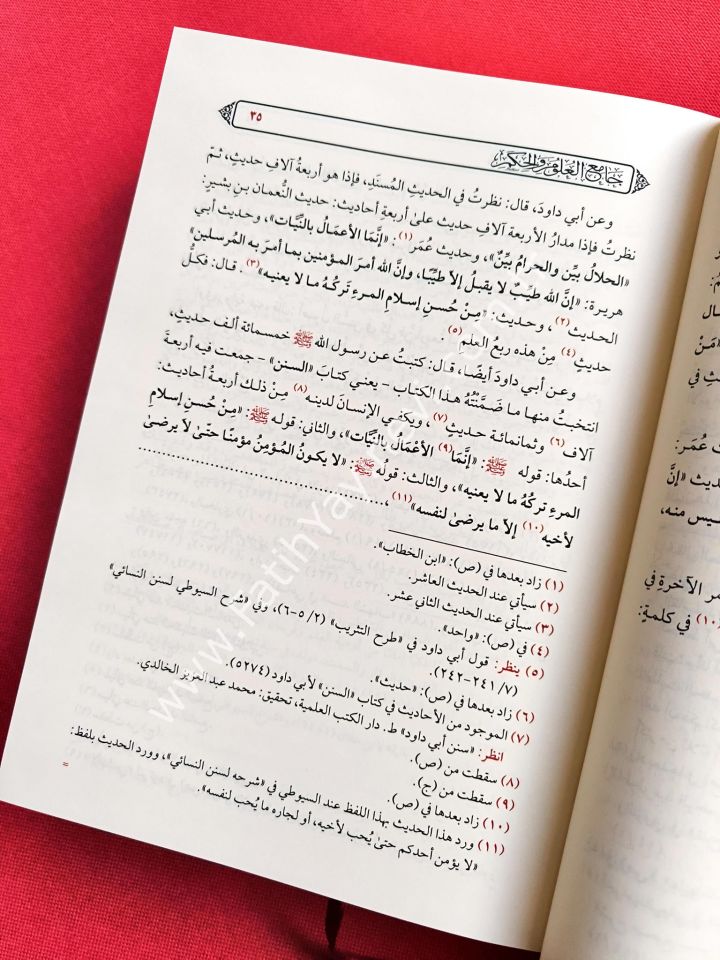 ٣٥
جامع العلوم والحكم
وعن أبي داودَ، قال: نظرتُ في الحديثِ المُسنَدِ، فإذا هو أربعةُ آلافِ حديثٍ، ثمّ
نظرتُ فإذا مدارُ الأربعة آلافِ حديث علىٰ أربعةِ أحاديث: حديث النُّعمان بنِ بشيرٍ:
«الحلالُ بيِّن والحرامُ بيِّنٌ»، وحديث عُمَر(١): «إنَّمَا الأعمَالُ بالنِّيَّات»، وحديث أبي
هريرة: «إنَّ الله طيِّبٌ لا يقبلُ إلاَّ طيِّبًا، وإنَّ الله أمرَ المؤمنين بما أمرَ به المُرسلين»
الحديث(٢)، وحديث: «مِنْ حُسنِ إسلامِ المرءِ تَركُهُ ما لا يعنيه»(٣). قال: فكلُّ
حديثٍ(٤) مِنْ هذه ربعُ العلم(٥).
وعن أبي داودَ أيضًا، قال: كتبتُ عن رسول الله ﷺ خمسمائة ألف حديثٍ،
انتخبتُ منها ما ضَمَّنْتُهُ هذا الكتاب – يعني كتابَ «السنن» – جمعت فيه أربعةَ
آلاف(٦) وثمانمائة حديثٍ(٧)، ويكفي الإنسانَ لدينه(٨) مِن ذلك أربعةُ أحاديث:
أحدُها: قوله ﷺ: «إنَّمَا(٩) الأعْمَالُ بالنِّيَّات»، والثاني: قوله ﷺ: «مِنْ حُسنِ إسلامِ
المرءِ تركُهُ ما لا يعنيه»، والثالث: قولُه ﷺ: «لا يكونُ المُؤمِنُ مؤمنًا حتَّىٰ لا يرضىٰ
لأخيه(١٠) إلاَّ ما يرضىٰ لنفسه»(١١)، ........................................
(١) زاد بعدها في (ص): «ابن الخطاب».
(٢) سيأتي عند الحديث العاشر.
(٣) سيأتي عند الحديث الثاني عشر.
(٤) في (ص): «واحد».
(٥) ينظر: قول أبي داود في «طرح التثريب» (٢/ ٥-٦)، وفي «شرح السيوطي لسنن النسائي»
(٧/ ٢٤١-٢٤٢).
(٦) زاد بعدها في (ص): «حديث».
(٧) الموجود من الأحاديث في كتاب «السنن» لأبي داود (٥٢٧٤).
انظر: «سنن أبي داود» ط. دار الكتب العلمية، تحقيق: محمد عبد العزيز الخالدي.
(٨) سقطت من (ص).
(٩) سقطت من (ج).
(١٠) زاد بعدها في (ص).
(١١) ورد هذا الحديث بهذا اللفظ عند السيوطي في «شرحه لسنن النسائي»، وورد الحديث بلفظ:
«لا يؤمن أحدكم حتىٰ يُحب لأخيه، أو لجاره ما يُحب لنفسه».
=